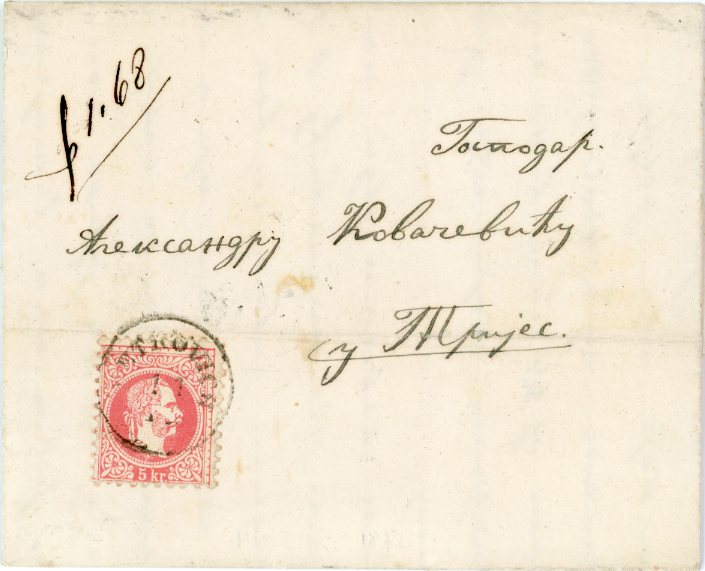 ƒ 1.68
Господар.
Александру Ковачевићу
у Тријес.
5 kr.